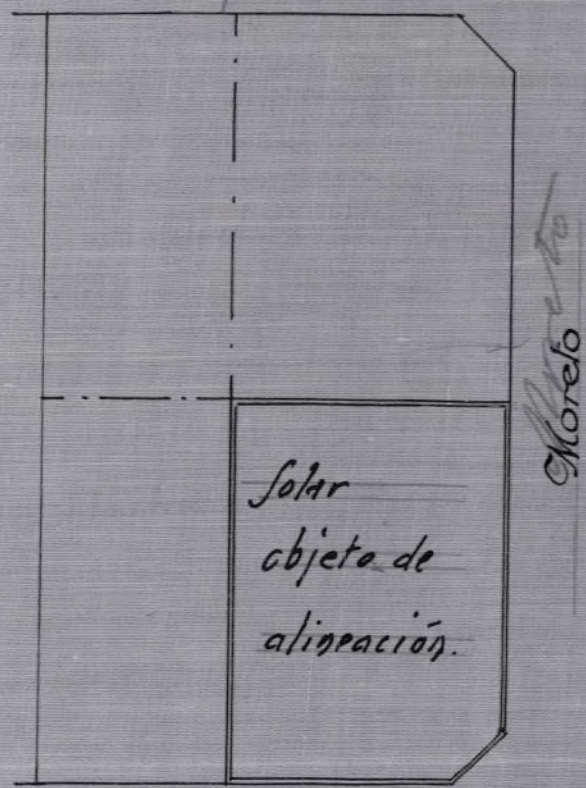 Solar
objeto de
alineación.
Moreto
Moreto